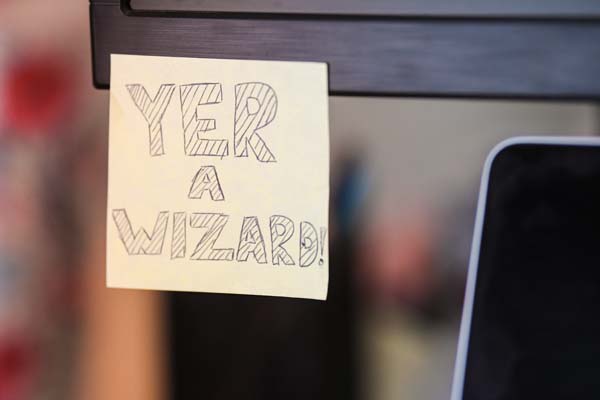 YER
A
WIZARD!